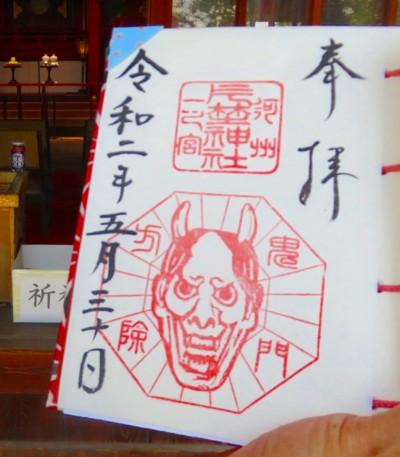 奉拝
河州
片埜神社
一之宮
鬼門
方除
令和二年五月三十日
祈